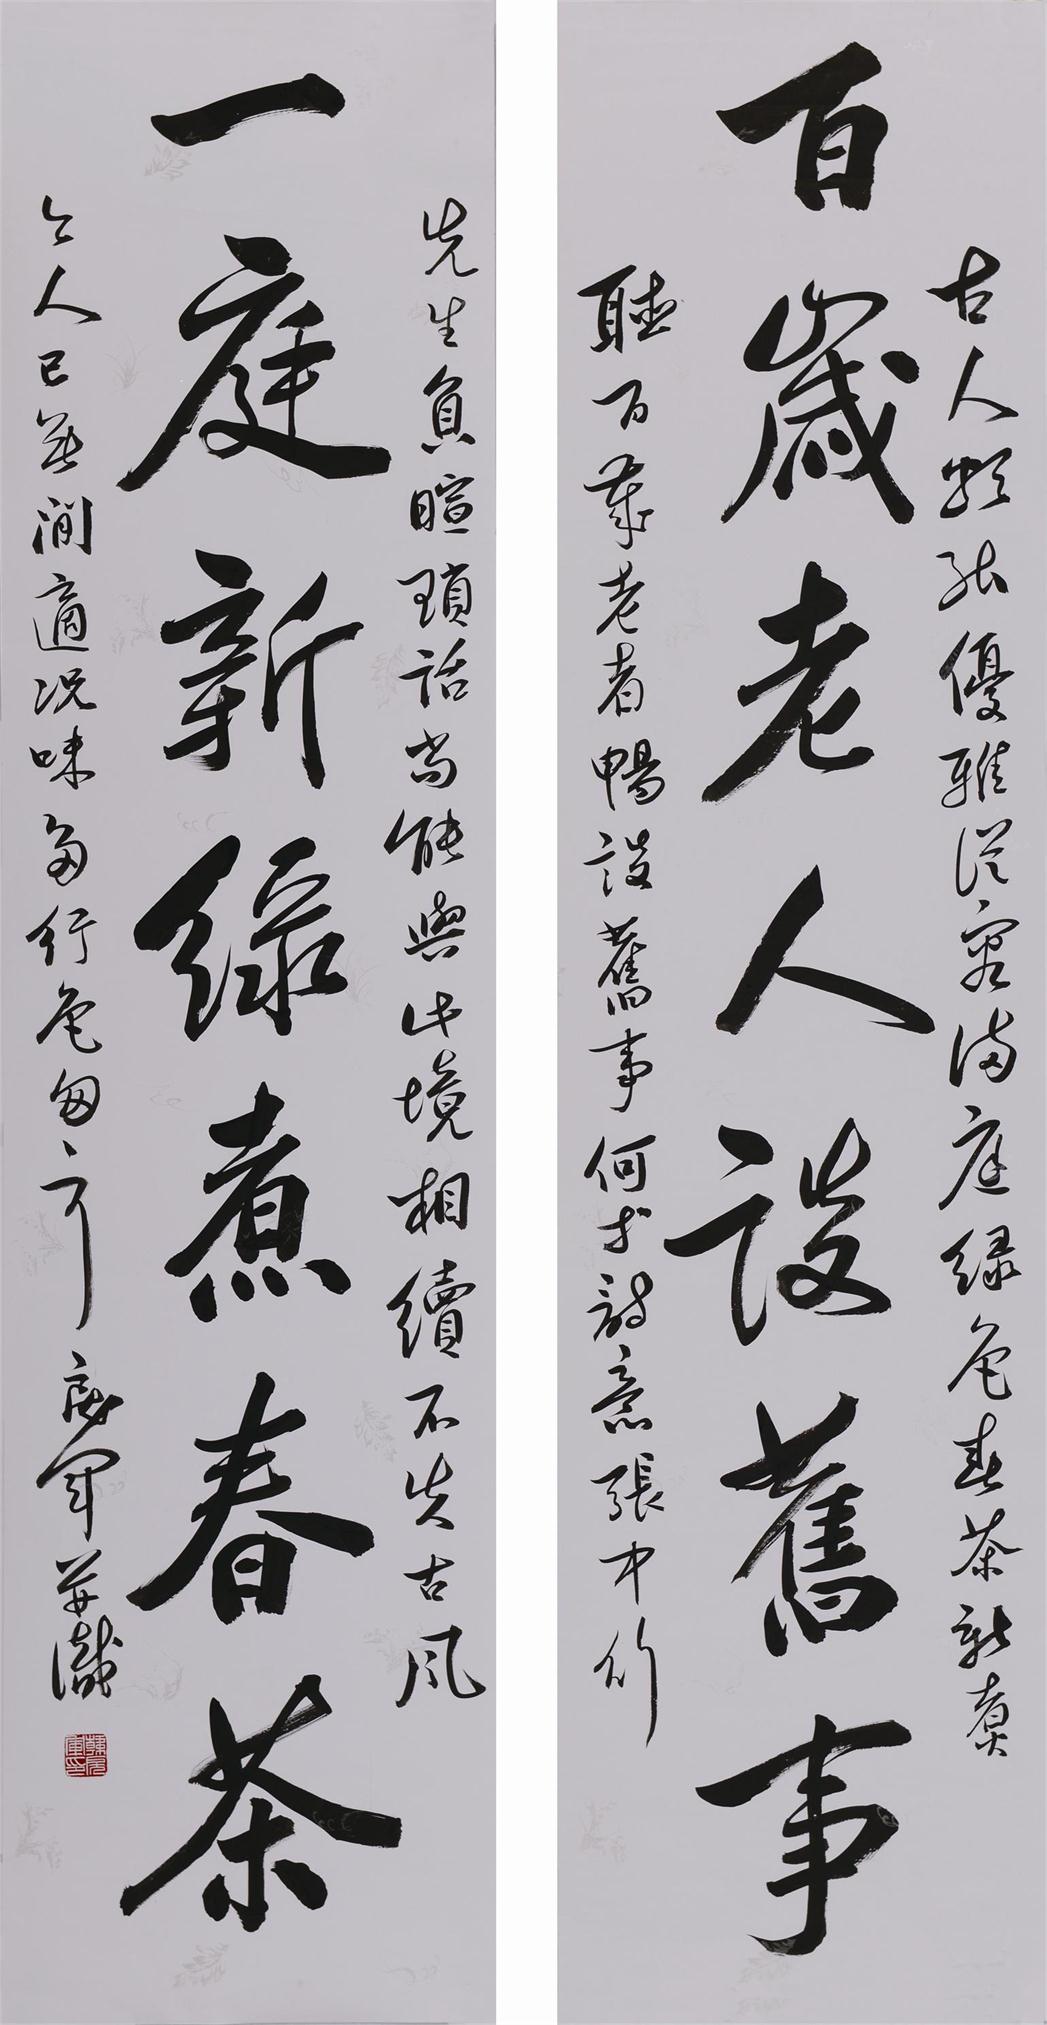 古人頗能優雅從容滿庭綠色春茶新煮
百歲老人談舊事
聽百歲老者暢談舊事何等詩意張中行
先生負暄瑣話尚能與此境相續不失古風
一庭新綠煮春茶
今人已無閒適況味多行色匆匆 軍并識